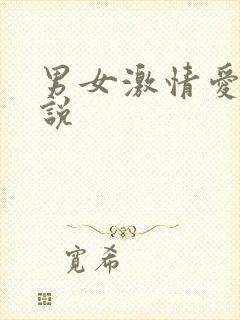 男女激情愛
說
寬希